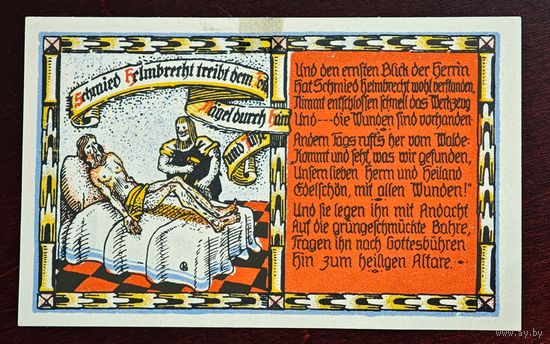 Schmied Helmbrecht treibt dem
Nägel durch
und
Und den ernsten Blick der Herrin
Hat Schmied Helmbrecht wohl verstanden,
Nimmt entschlossen schnell das Werkzeug
Und---die Wunden sind vorhanden.
Andern Tags ruft's her vom Walde:
„Kommt und seht, was wir gefunden,
Unsern lieben Herrn und Heiland
Edelschön, mit allen Wunden!"
Und sie legen ihn mit Andacht
Auf die grüngeschmückte Bahre,
Tragen ihn nach Gottesbühren
Hin zum heiligen Altare.
www.ay.by